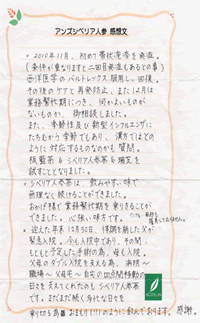 アンズシベリア人参 感想文
・2010年11月、初めて帯状疱疹を発症。
(条件が重なりますと二回目発症もあるとの事)
西洋医学のバルトレックス服用し、回復。
その後のケアと再発防止、また12月は
業務繁忙期につき、何かよいものが
ないものか、御相談しました。
また、季節性及び新型インフルエンザに
たちむかう季節であり、漢方ではどの
ように対応するものなのかも質問。
板藍茶 & シベリア人参茶 & 瓊玉を
試すことなりました。
・シベリア人参茶は、飲みやすい味で
無理なく続けることができました。
おかげ様で業務繁忙期を乗りきること
できました。心強い味方です。
・迎えた年末12月30日、体調を崩した父が
緊急入院。今も入院中であり、その間、
もともと予定した手術の為、母も入院。
父母のダブル入院を支える為、病院〜
職場〜父母宅〜自宅の四点間移動の
日々を支えてくれたのもシベリア人参茶
です。まだまだ続く多忙な日々を
乗りきる為 お守り(!!)のように飲んでおります。感謝。